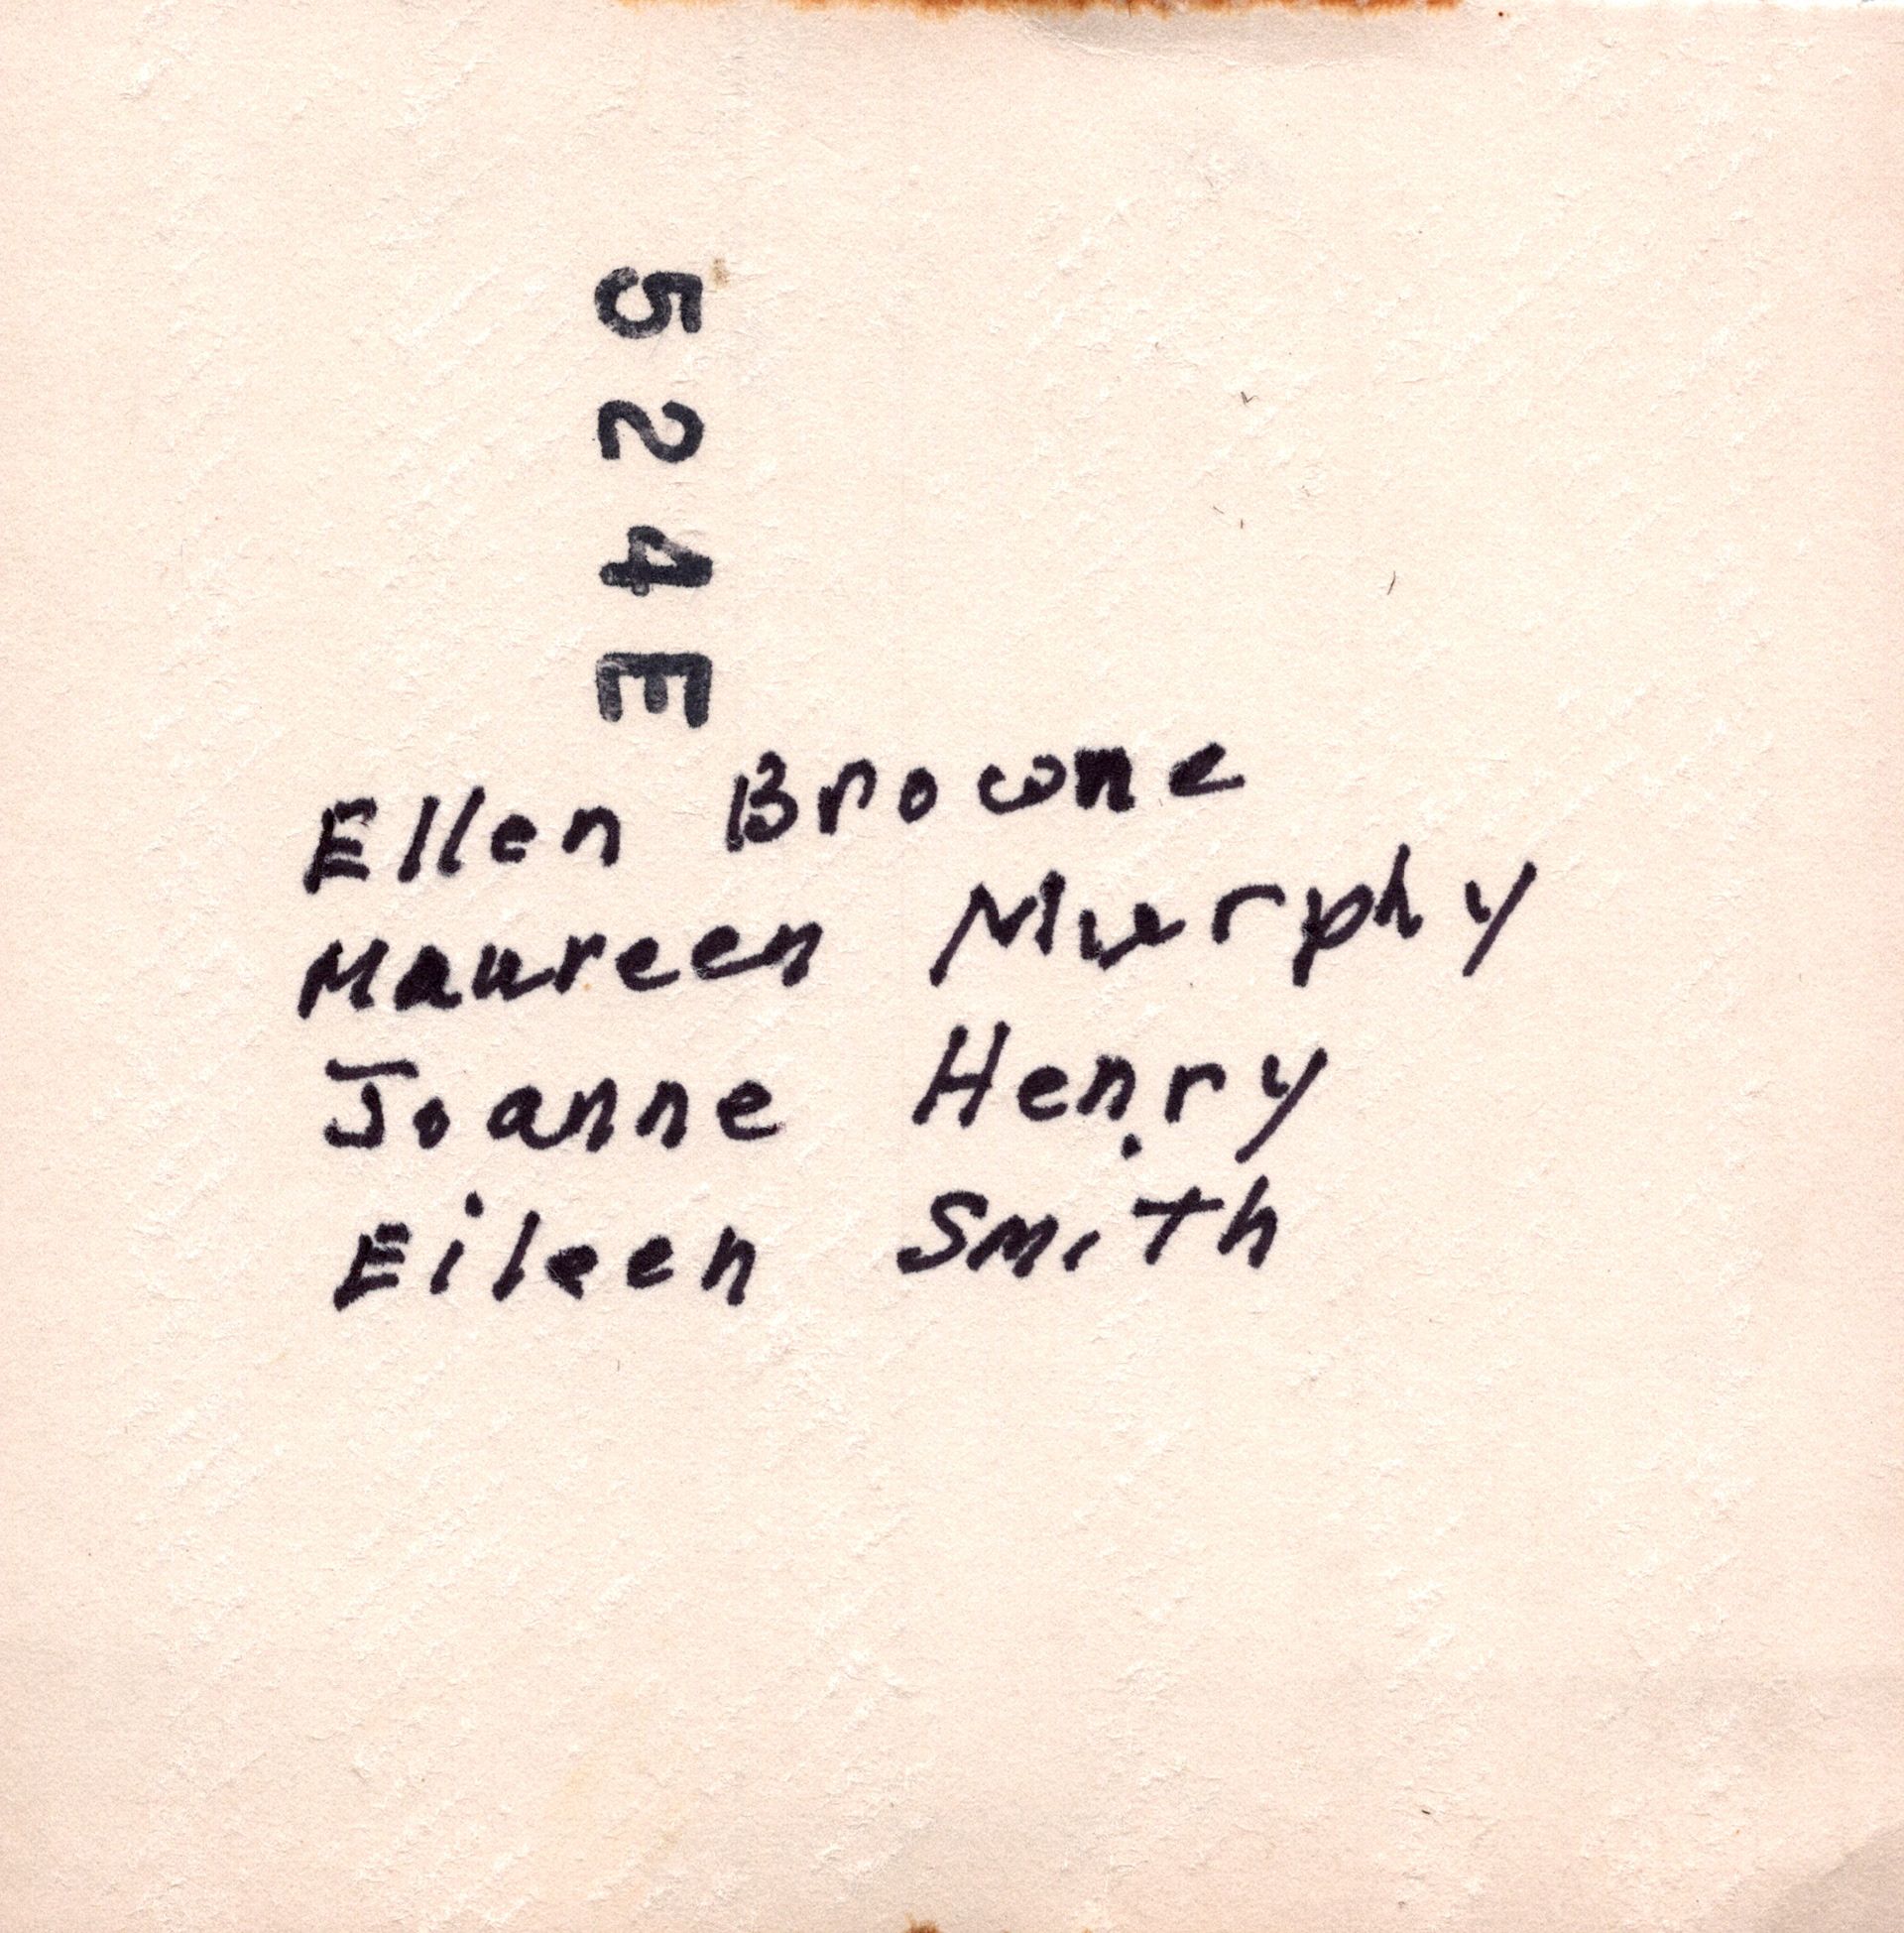 524E
Ellen Browne
Maureen Murphy
Joanne Henry
Eileen Smith